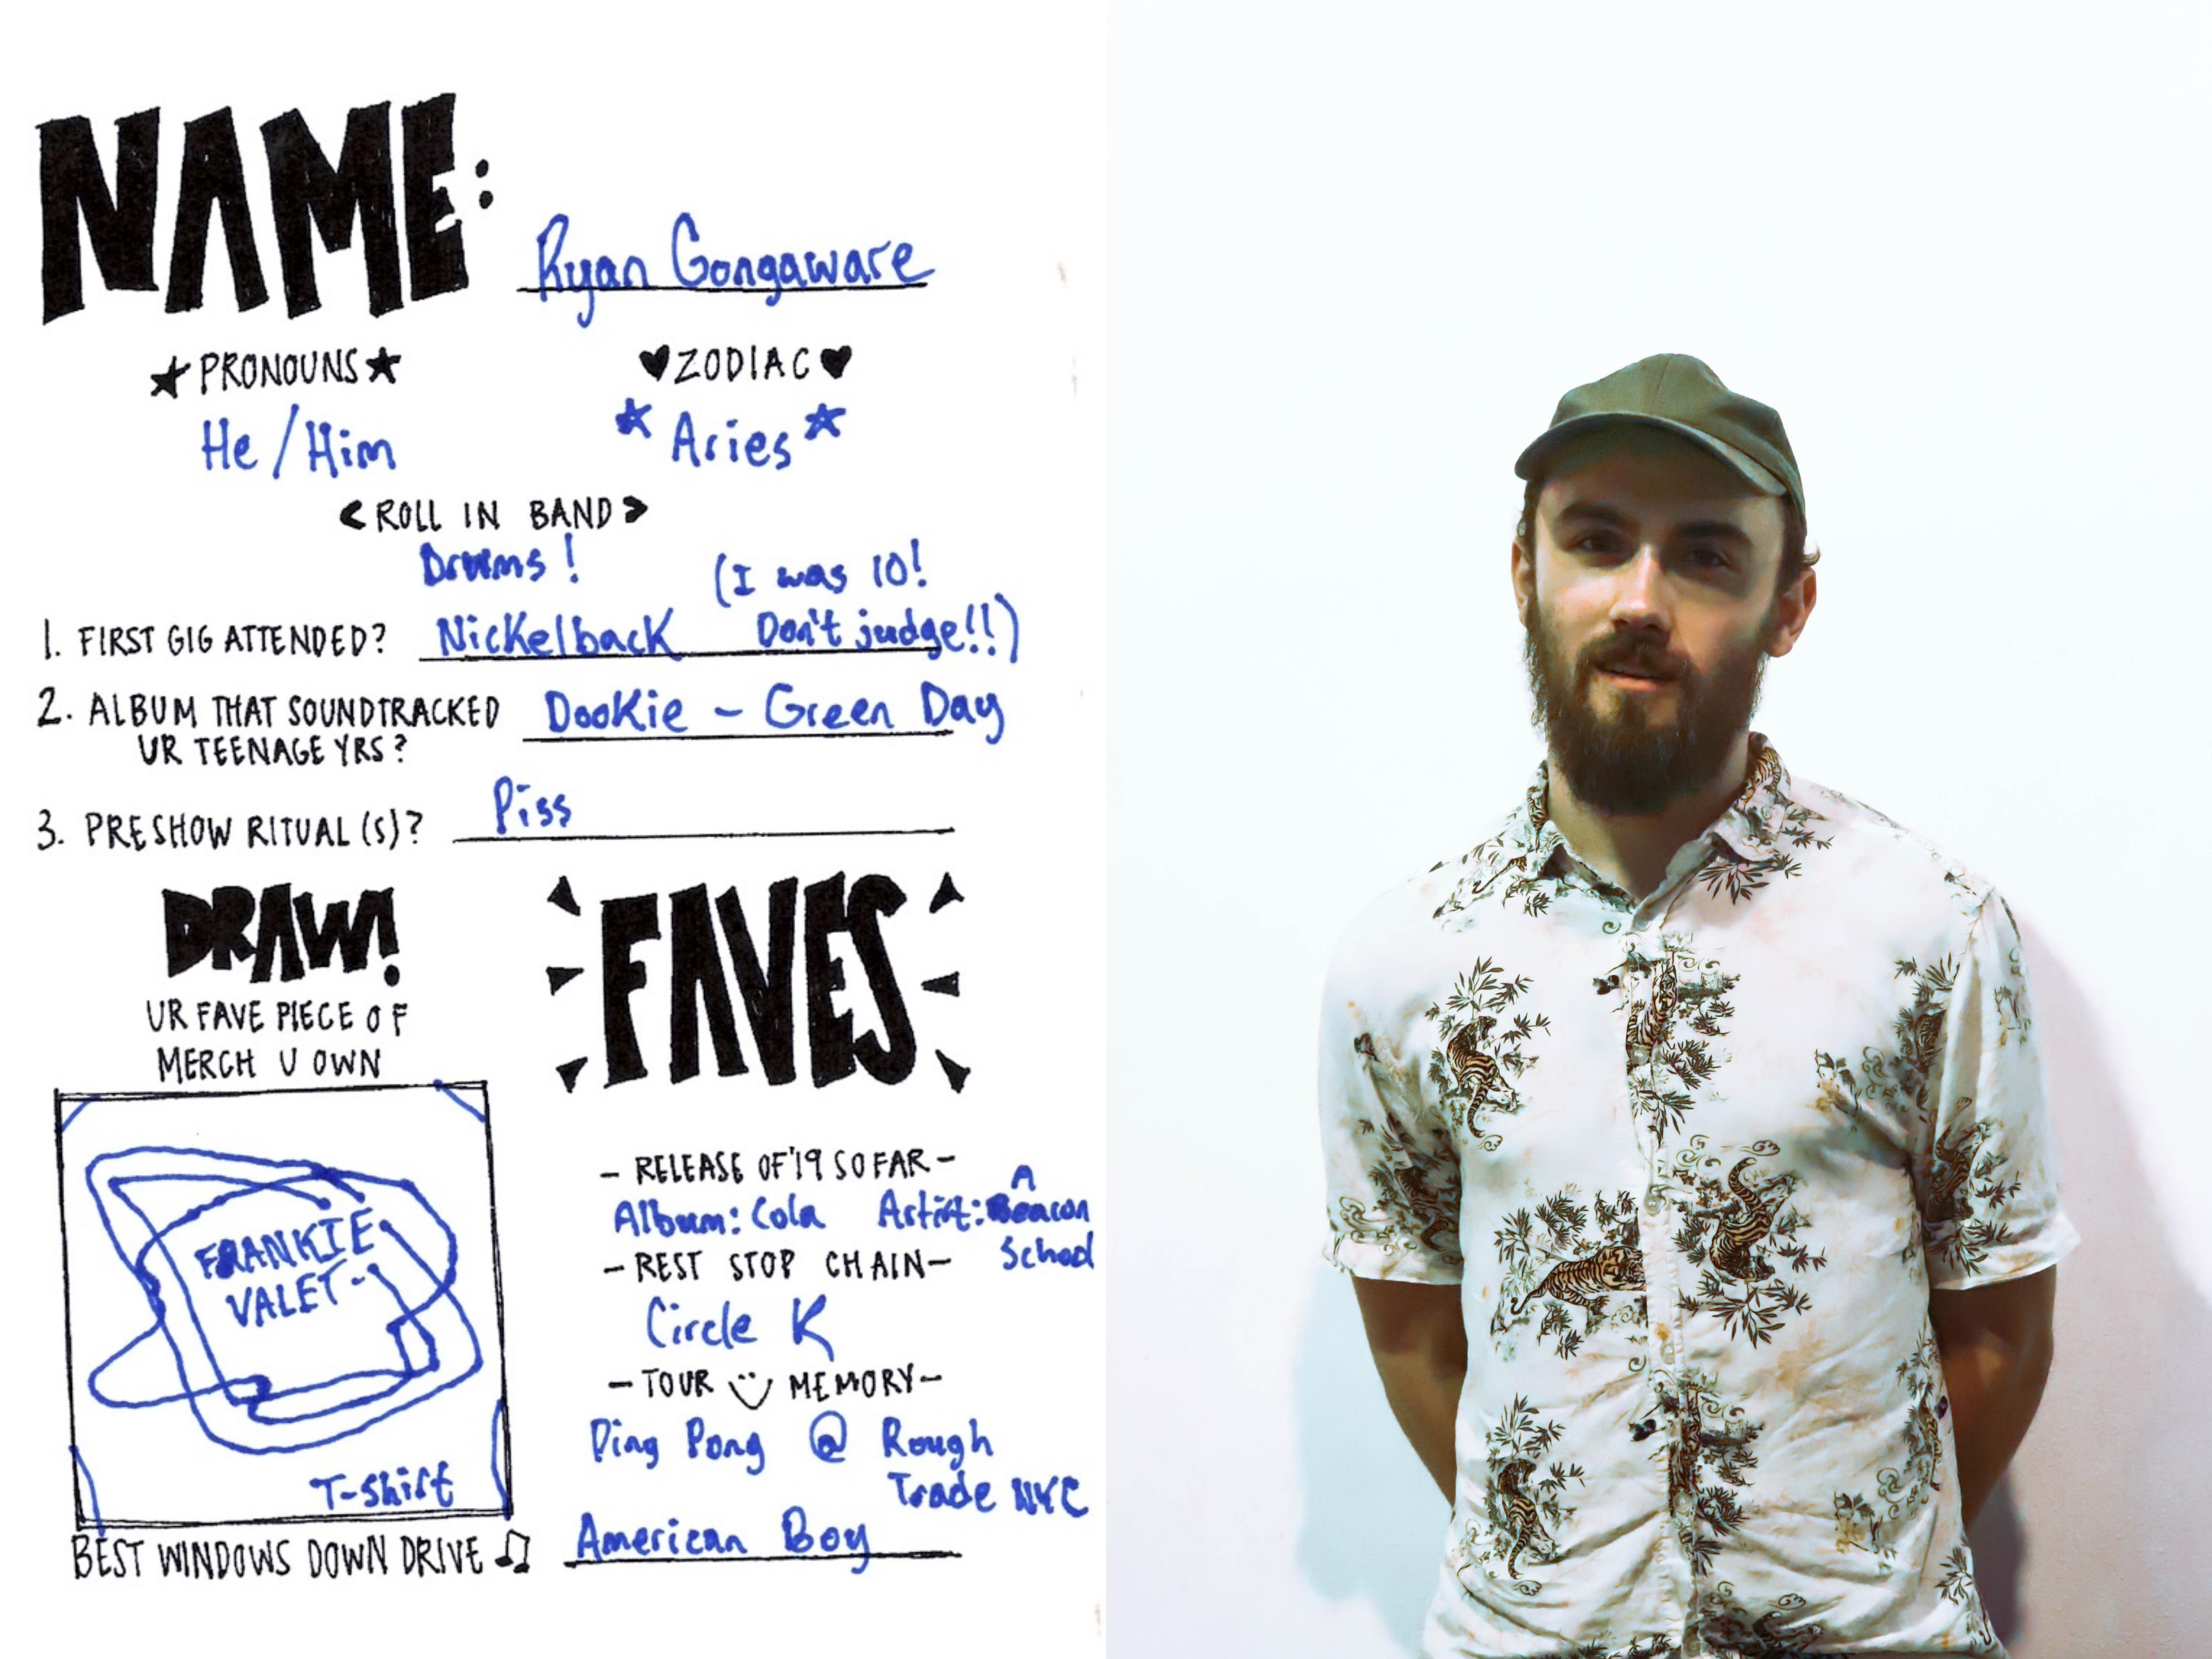 NAME: Ryan Gongaware
★PRONOUNS★ ♥ZODIAC♥
He/Him *Aries*
<ROLL IN BAND>
Drums!
(I was 10!
1. FIRST GIG ATTENDED? Nickelback Don't judge!!)
2. ALBUM THAT SOUNDTRACKED Dookie - Green Day
UR TEENAGE YRS?
3. PRESHOW RITUAL(S)? Piss
DRAW!
UR FAVE PIECE OF
MERCH U OWN
FRANKIE
VALET
T-shirt
FAVES
- RELEASE OF '19 SO FAR -
Album: Cola Artist: A Beacon
School
- REST STOP CHAIN -
Circle K
- TOUR MEMORY -
Ping Pong @ Rough
Trade NYC
BEST WINDOWS DOWN DRIVE ♫ American Boy